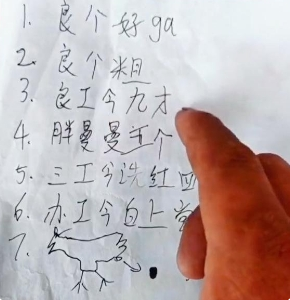 1. 良个好ga
2. 良个粗
3. 良工今九才
4. 胖曼曼工个
5. 三工今洗红四
6. 办工今白上堂
7.